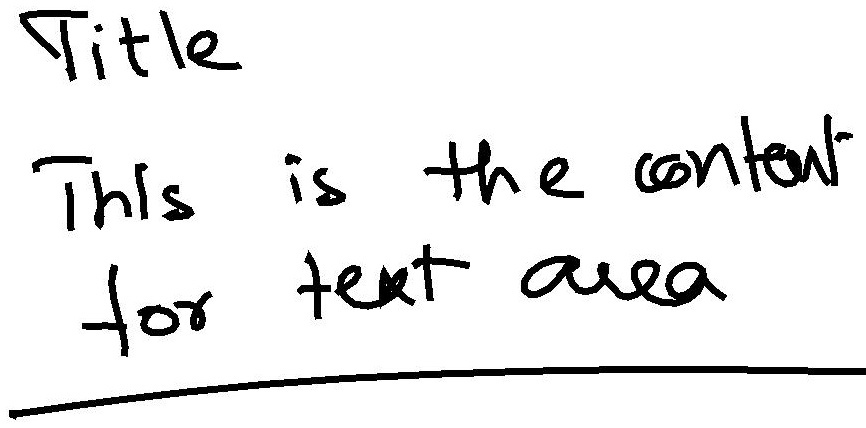 Title
This is the content
for text area